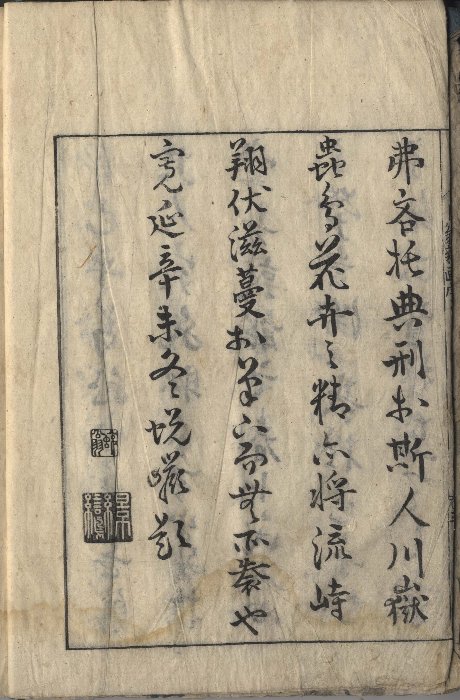 弗吝托典刑於斯人川嶽
蟲鳥花卉之精亦將流峙
翔伏滋蔓於筆下而無所袭也
寛延辛未冬蜕巖題